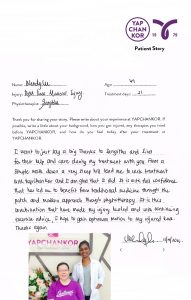 YAP
CHAN
KOR
1879
Patient Story
Name: Wendy Lee
Age:
Injury: Right Knee Meniscus Injury
Treatment days: 21
Physiotherapist:
Thank you for sharing your story. Please write about your experience at YAPCHANKOR. If
possible, write a little about your background, how you got injured, any therapies you tried
before YAPCHANKOR, and how do you feel today after your treatment at
YAPCHANKOR.
I want to just say a big thanks to and
for their help and care during my treatment with you. After a
simple walk down a very steep hill lead me to seek treatment
with Yapchankor and I am glad that I did. It is with this confidence
that has led me to benefit from traditional medicine through the
and modern approach through physiotherapy. It is this
combination that have made my injury healed and with continuing
exercise advice, I hope to gain optimum motion to my injured knee.
Thanks again
YAPCHANKOR